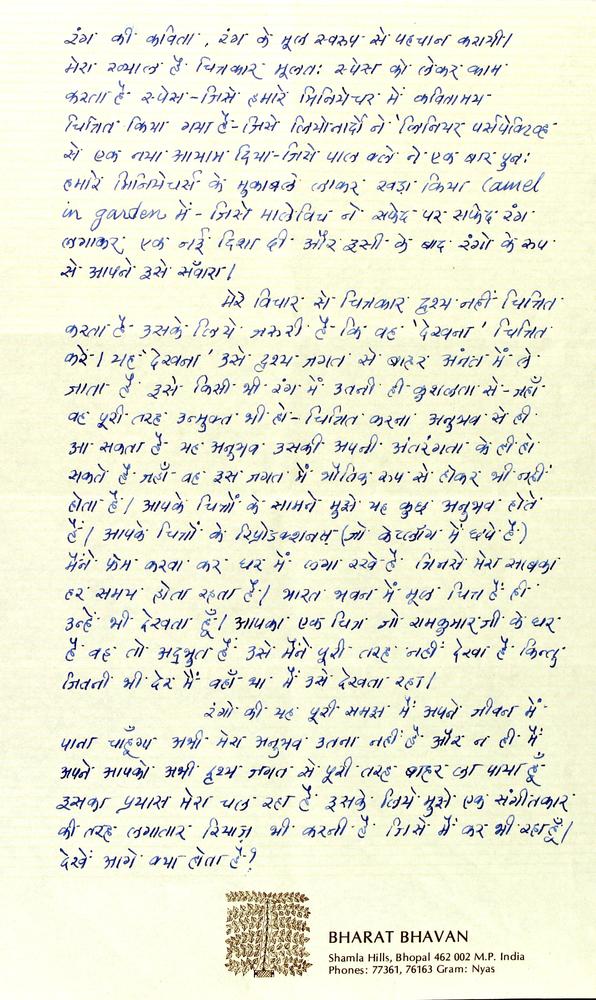 रंग की कविता, रंग के मूल स्वरूप से पहचान करायी।
मेरा ख्याल है चित्रकार मूलतः स्पेस को लेकर काम
करता है स्पेस - जिसे हमारे मिनियेचर में कवितामय
चित्रित किया गया है - जिसे लियोनार्दो ने 'लिनियर पर्सपेक्टिव्ह
से एक नया आयाम दिया - जिसे पाल क्ले ने एक बार पुनः
हमारे मिनियेचर्स के मुकाबले लाकर खड़ा किया Camel
in garden में - जिसे मालेविच ने सफेद पर सफेद रंग
लगाकर, एक नई दिशा दी और इसी के बाद रंगो के रूप
से आपने इसे सँवारा।
मेरे विचार से चित्रकार दृश्य नहीं चित्रित
करता है उसके लिये जरूरी है कि वह 'देखना' चित्रित
करे। यह 'देखना' उसे दृश्य जगत से बाहर अनंत में ले
जाता है इसे किसी भी रंग में उतनी ही कुशलता से - जहाँ
वह पूरी तरह उन्मुक्त भी हो - चित्रित करना अनुभव से ही
आ सकता है यह अनुभव उसकी अपनी अंतरंगता के ही हो
सकते है जहाँ वह इस जगत में भौतिक रूप से होकर भी नहीं
होता है। आपके चित्रों के सामने मुझे यह कुछ अनुभव होते
है। आपके चित्रों के रिप्रोडक्शनस् (जो केटलॉग में छपे है)
मैंने फ्रेम करवा कर घर में लगा रखे है जिनसे मेरा साबका
हर समय होता रहता है। भारत भवन में मूल चित्र है ही
उन्हें भी देखता हूँ। आपका एक चित्र जो रामकुमार जी के घर
है वह तो अद्भुत है उसे मैंने पूरी तरह नहीं देखा है किन्तु
जितनी भी देर मैं वहाँ था मैं उसे देखता रहा।
रंगो की यह पूरी समझ मैं अपने जीवन में
पाना चाहूँगा अभी मेरा अनुभव उतना नहीं है और न ही मैं
अपने आपको अभी दृश्य जगत से पूरी तरह बाहर ला पाया हूँ
इसका प्रयास मेरा चल रहा है इसके लिये मुझे एक संगीतकार
की तरह लगातार रियाज़ भी करनी है जिसे मैं कर भी रहा हूँ।
देखें आगे क्या होता है?
BHARAT BHAVAN
Shamla Hills, Bhopal 462 002 M.P. India
Phones: 77361, 76163 Gram: Nyas